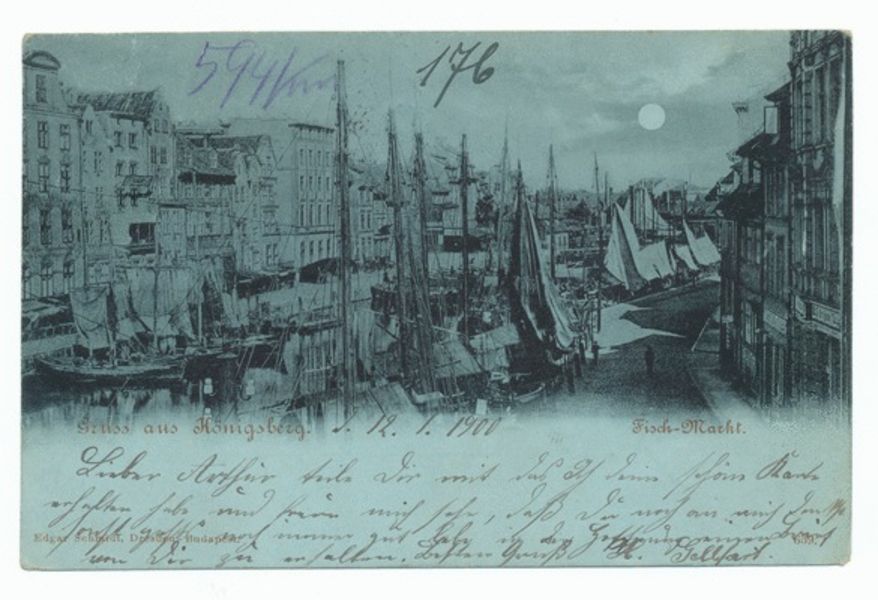 594/
176
Gruss aus Königsberg. d. 12. 1. 1900
Fisch-Markt.
Lieber Arthur teile Dir mit das ich deine schöne Karte
erhalten habe und freue mich sehr, daß Du noch an mich
noch immer gut Lebe in der Hoffnung einen Brief
von Dir zu erhalten. Besten Gruß H.
Edgar Schmidt, Dresden, Budapest.